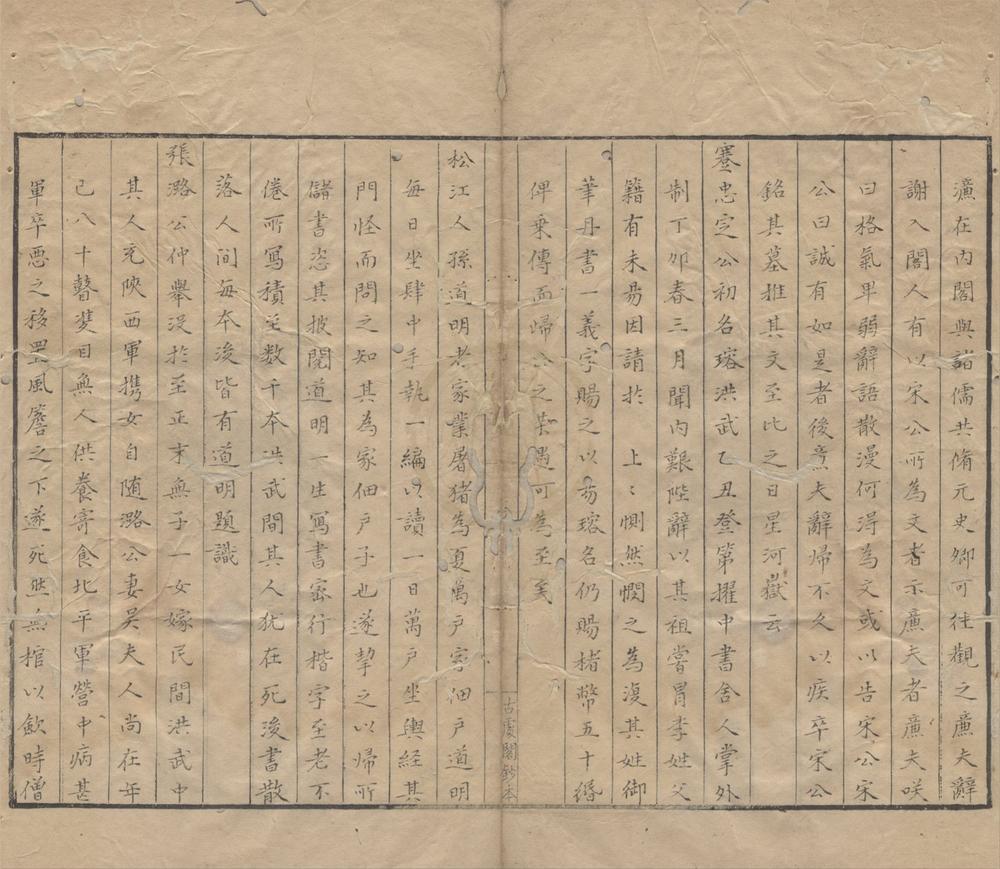 濂在內閣與諸儒共脩元史卿可徃觀之廉夫辭
謝入閣人有以宋公所為文者示廉夫者廉夫咲
曰格氣卑弱辭語散漫何淂為文或以告宋公宋
公曰誠有如是者後亰夫辭歸不久以疾卒宋公
銘其墓推其文至比之日星河嶽云
蹇忠㝎公初名瑢洪武乙丑登第擢中書舍人掌外
制丁夘春三月聞內艱陛辭以其祖嘗冒李姓父
籍有未昜因請於 上〻惻然憫之為澓其姓御
筆丹書一義字賜之以昜瑢名仍賜楮幣五十緡
俾乗傳而㱕公之榮遇可為至矣
松江人孫道明者家業屠猪為夏萬户家佃户道明
每日坐肆中手執一編以讀一日萬户坐輿経其
門怪而問之知其為家佃户子也遂挈之以帰所
儲書恣其披閱道明一生寫書宻行楷字至老不
倦所寫積至数千夲洪武間其人犹在死後書散
落人间每夲後皆有道明題識
張潞公仲舉没扵至正末無子一女嫁民間洪武中
其人充陝西軍携女自随潞公妻吴夫人尚在年
已八十瞽雙目無人供養寄食北平軍營中病甚
軍卒惡之移置風簷之下遂死然無棺以歛時僧
古雯閣鈔本